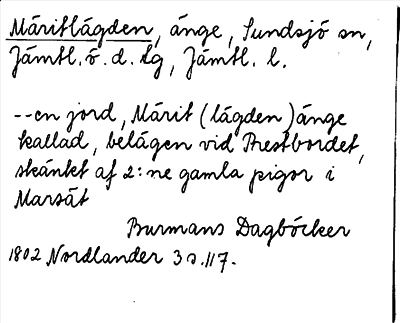 Märitlägden, änge, Sundsjö sn,
Jämtl. ö. d. lg, Jämtl. l.
--en jord, Märit (lägden) änge
kallad, belägen vid Prestbordet,
skänkt af 2:ne gamla pigor i
Marsät
Burmans Dagböcker
1802 Nordlander 3 s. 117.